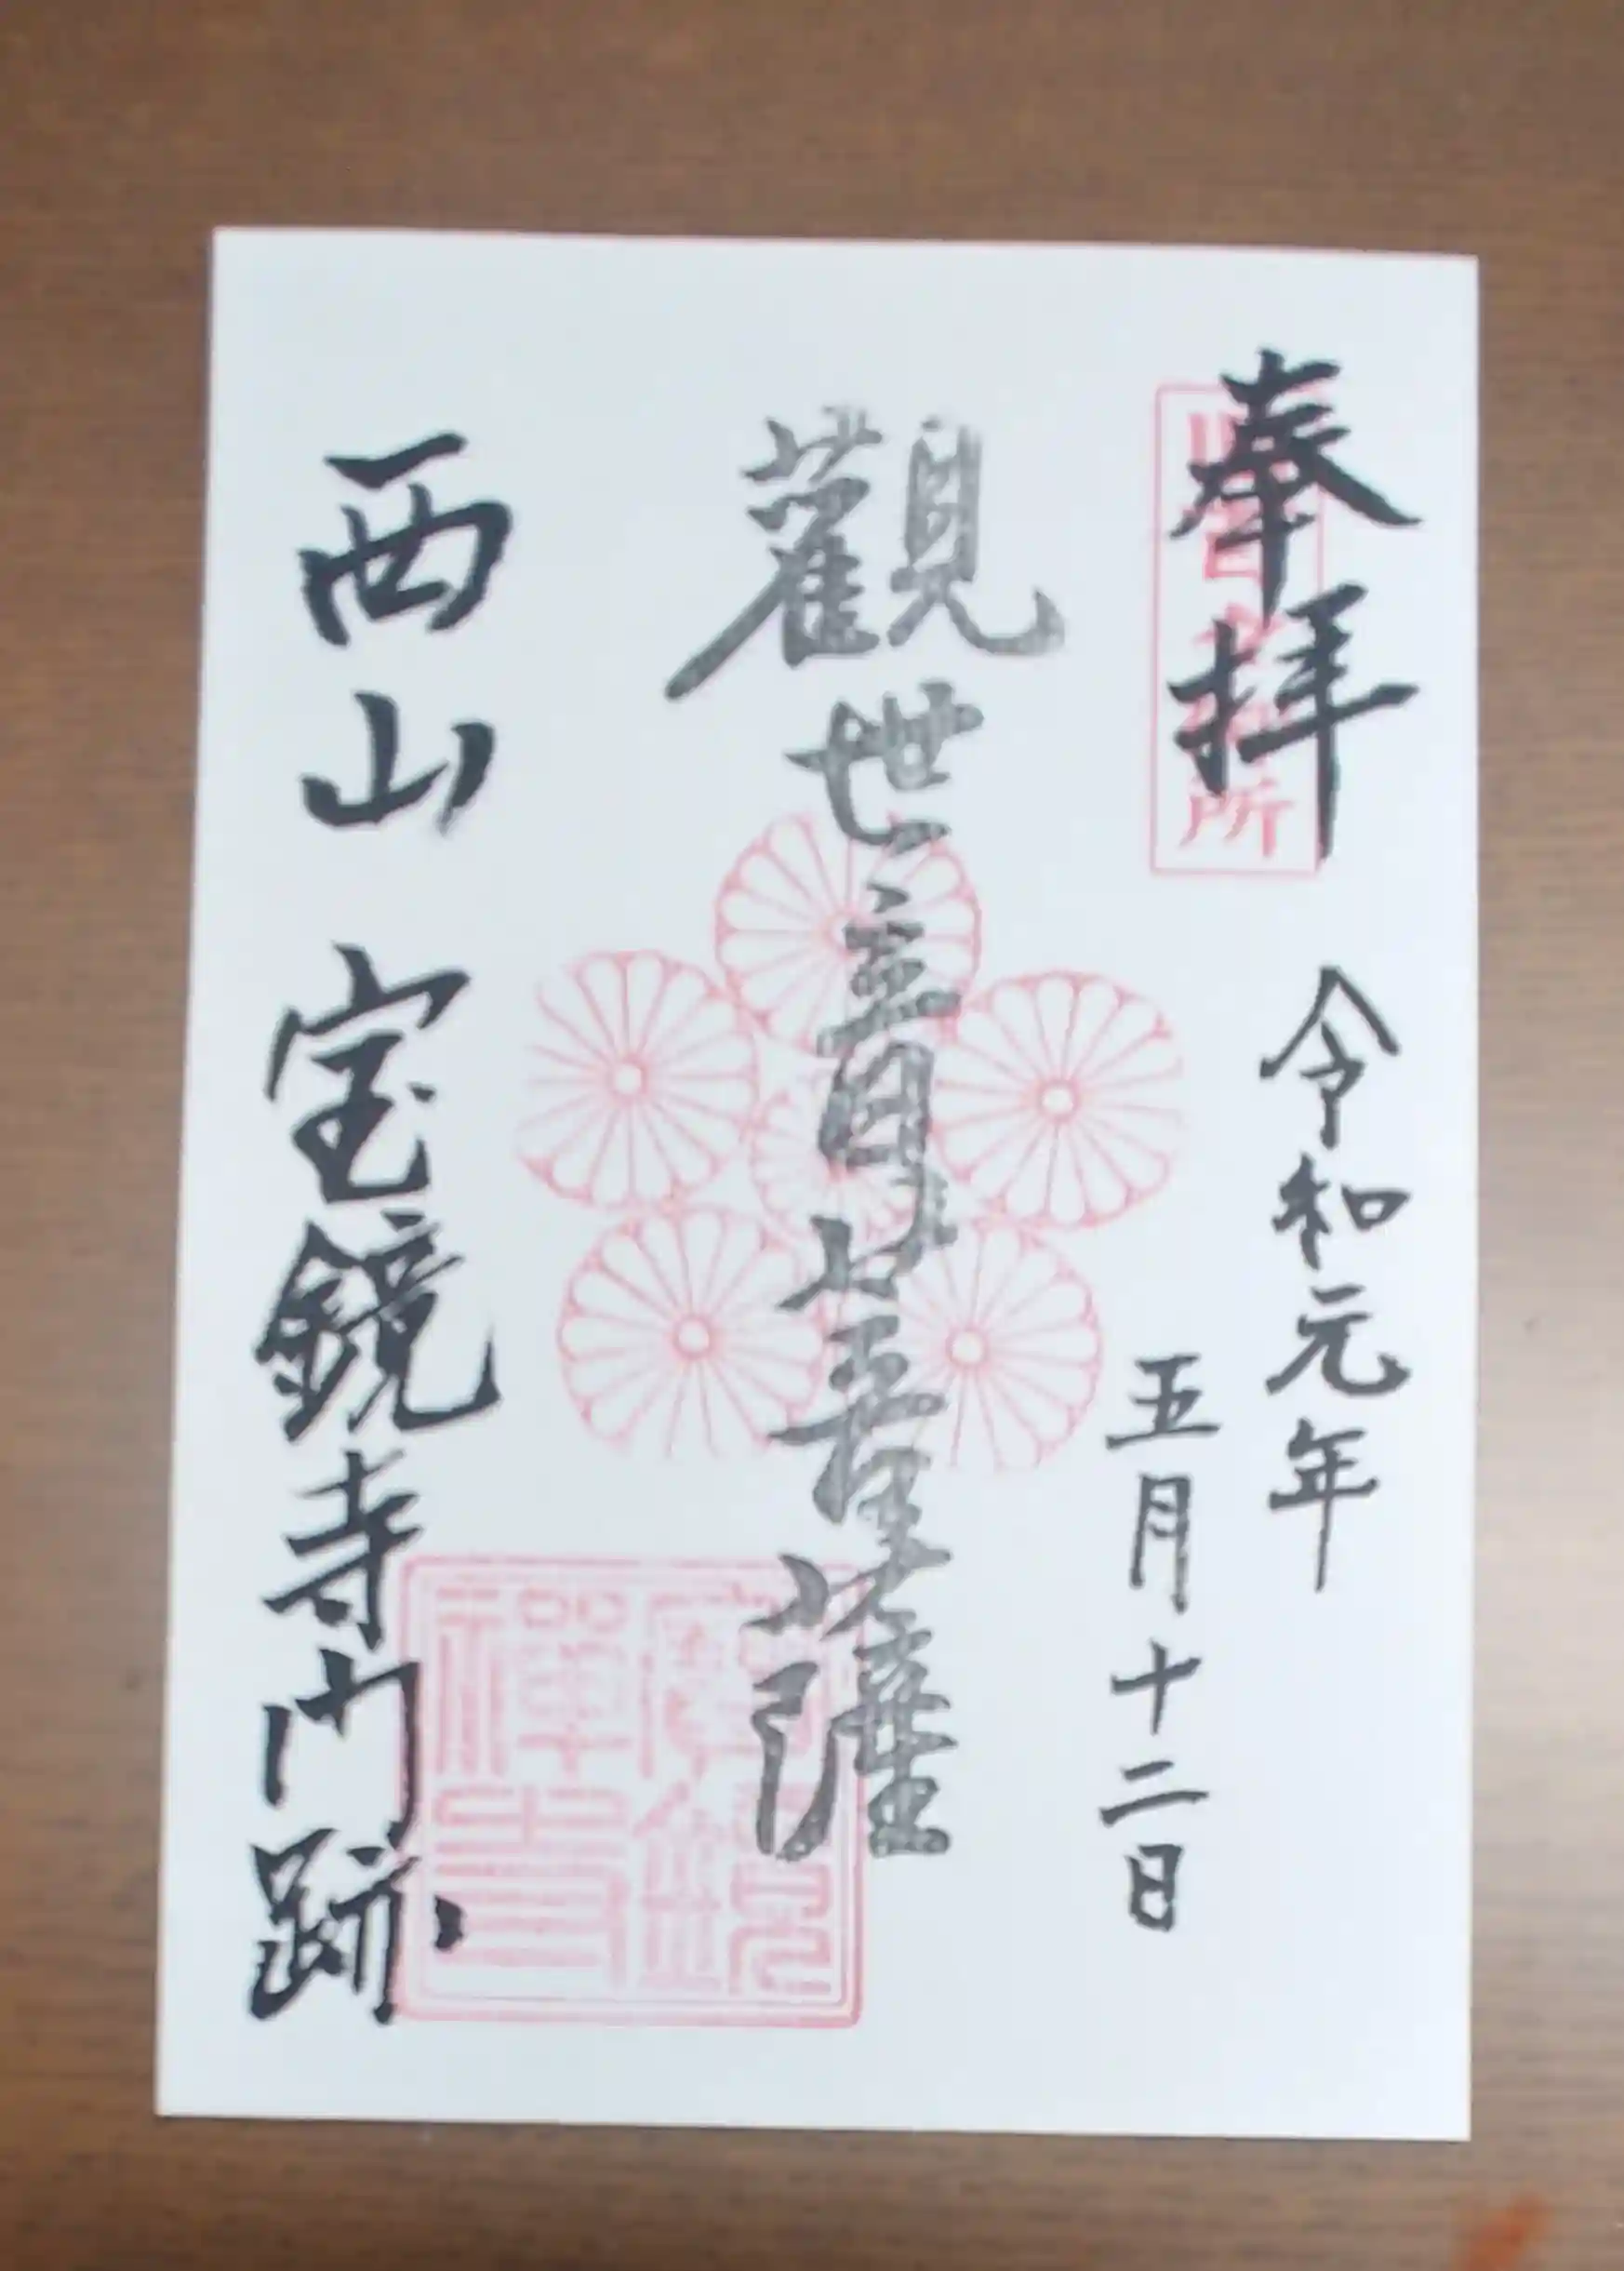 奉拝
令和元年
五月十二日
觀世音菩薩
西山 宝鏡寺門跡
寳鏡
禅寺